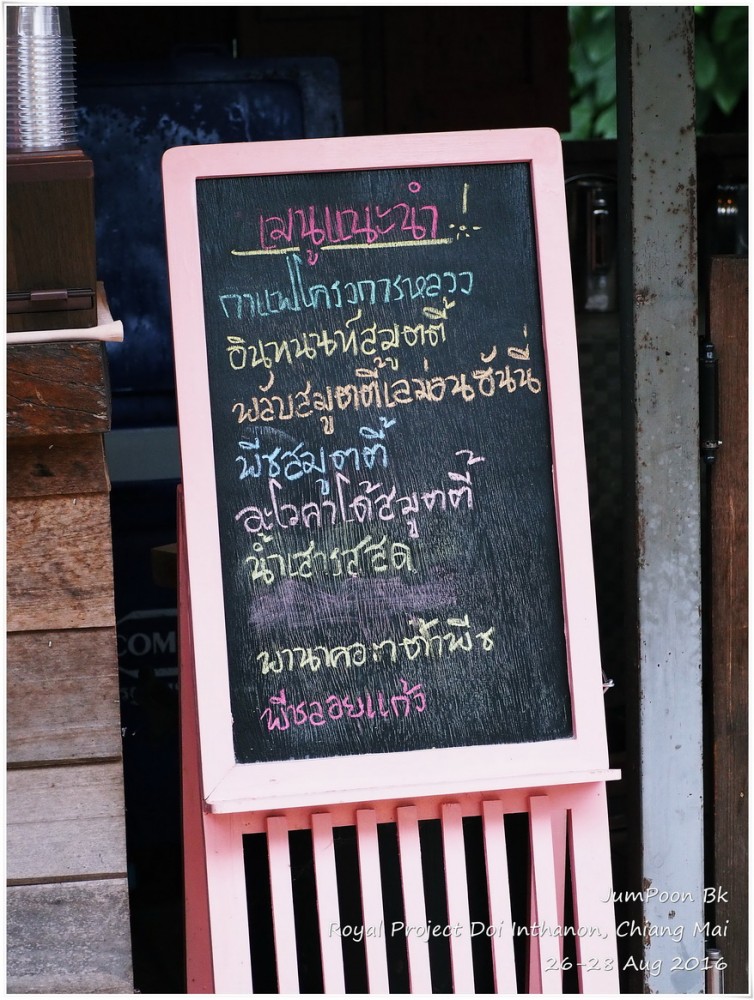 เมนูแนะนำ!!
กาแฟโครงการหลวง
อินทนนท์สมูตตี้
พลับสมูตตี้เลม่อนซันนี่
พีชสมูตตี้
อะโวคาโด้สมูตตี้
น้ำเสารสสด
พานาคอตต้าพีช
พีชลอยแก้ว
COM
JumPoon Bk
Royal Project Doi Inthanon, Chiang Mai
26-28 Aug 2016